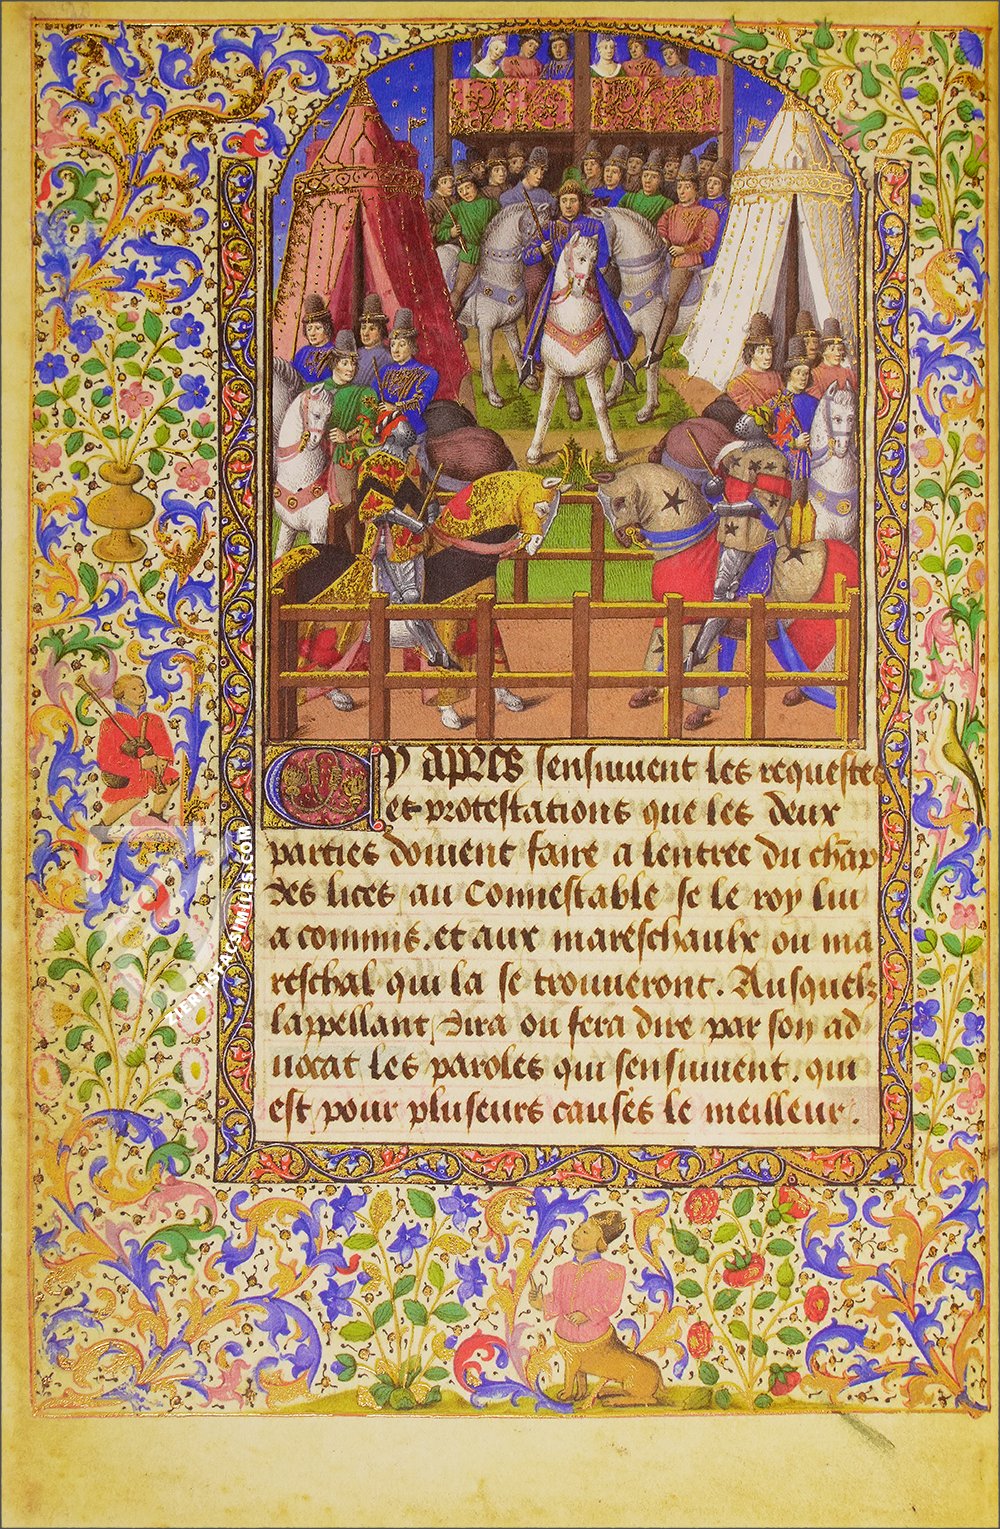 Cy apres sensiuuent les requestes
et protestations que les deux
parties doiuent faire a lentree du chãp
des lices, au Connestable se le roy lui
a commis. et aux mareschaulx ou ma
reschal qui la se trouueront. Ausquelz
lappellant dira ou fera dire par son ad
uocat les paroles qui sensiuuent. qui
est pour pluseurs causes le meilleur.
ZIEREISFACSIMILES.COM